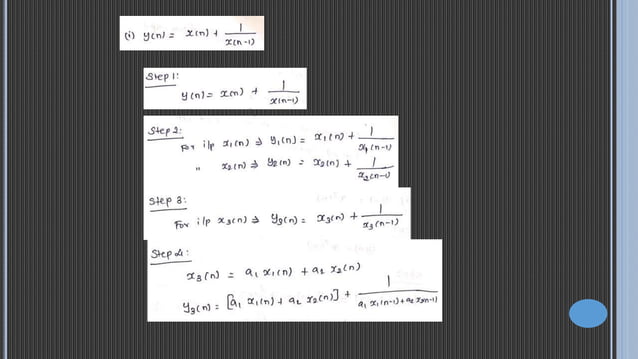 (i) y(n) = x(n) + 1/x(n-1)
Step 1:
y(n) = x(n) + 1/x(n-1)
Step 2:
For i/p x₁(n) ⇒ y₁(n) = x₁(n) + 1/x₁(n-1)
" x₂(n) ⇒ y₂(n) = x₂(n) + 1/x₂(n-1)
Step 3:
For i/p x₃(n) ⇒ y₃(n) = x₃(n) + 1/x₃(n-1)
Step 4:
x₃(n) = a₁ x₁(n) + a₂ x₂(n)
y₃(n) = [a₁ x₁(n) + a₂ x₂(n)] + 1/a₁ x₁(n-1) + a₂ x₂(n-1)